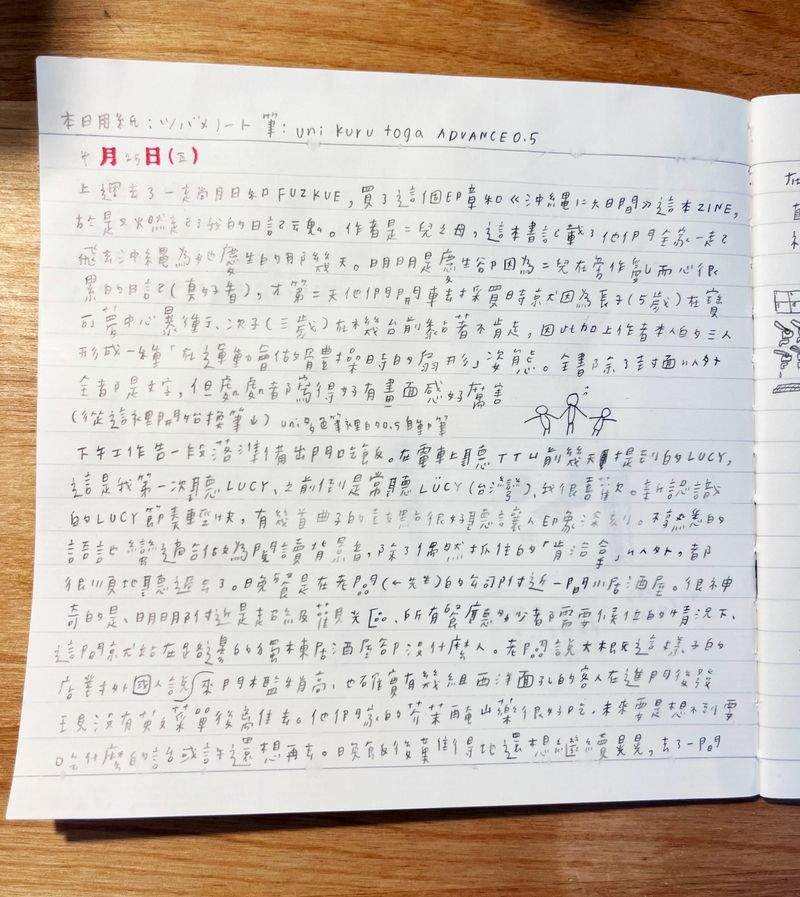 本日用紙：ツバメノート 筆：uni kuru toga ADVANCE 0.5
4月25日(五)
上週去了一趟月日和FUZKUE，買了這個印章和《沖縄に六日間》這本ZINE，
於是又燃起了我的日記魂。作者是二兒之母，這本書記載了他們全家一起
飛去沖縄為她慶生的那幾天。明明是慶生卻因為二兒在旁作亂而心很
累的日記(真好看)，才第二天他們開車去採買時就因為長子(5歲)在寶
可夢中心暴衝、次子(三歲)在機台前黏著不肯走，因此加上作者本人的三人
形成一種「在運動會做疊體操時的扇形」姿態。全書除了封面以外
全都是文字，但處處都寫得好有畫面感好厲害
(從這裡開始換筆↓) uni 色筆裡的0.5自動筆
下午工作告一段落準備出門吃飯。在電車上聽TT山前幾天提到的LUCY，
這是我第一次聽LUCY，之前倒是常聽LÜCY(台灣)，我很喜歡。新認識
的LUCY節奏輕快，有幾首曲子的主歌很好聽讓人印象深刻。不熟悉的
語言也蠻適合做為閱讀背景音，除了偶然抓住的「肯洽拿」以外，都
很順地聽過去了。晚餐是在老闆(←先生)的公司附近一間小居酒屋。很神
奇的是、明明附近是超級觀光區、所有餐廳多少都需要候位的情況下、
這間就站在路邊的獨棟居酒屋卻沒什麼人。老闆說大概是這樣子的
店對外國人說來門檻稍高、也確實有幾組西洋面孔的客人在進門後發
現沒有英文菜單後離去。他們家的芥菜醃山藥很好吃。未來要是想不到要
吃什麼的話或許還想再去。晚飯後葉得地還想繼續晃晃，去了一間